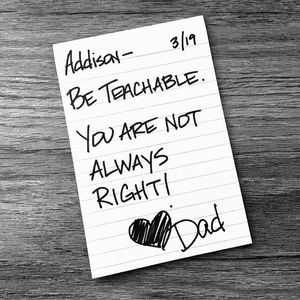 Addison— 3/19
Be Teachable.
You are not
always
right!
Dad